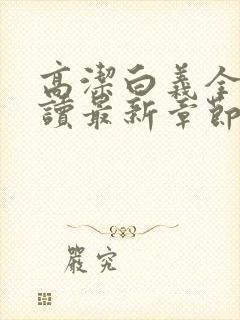 高潔白義全
讀最新章節
嚴究